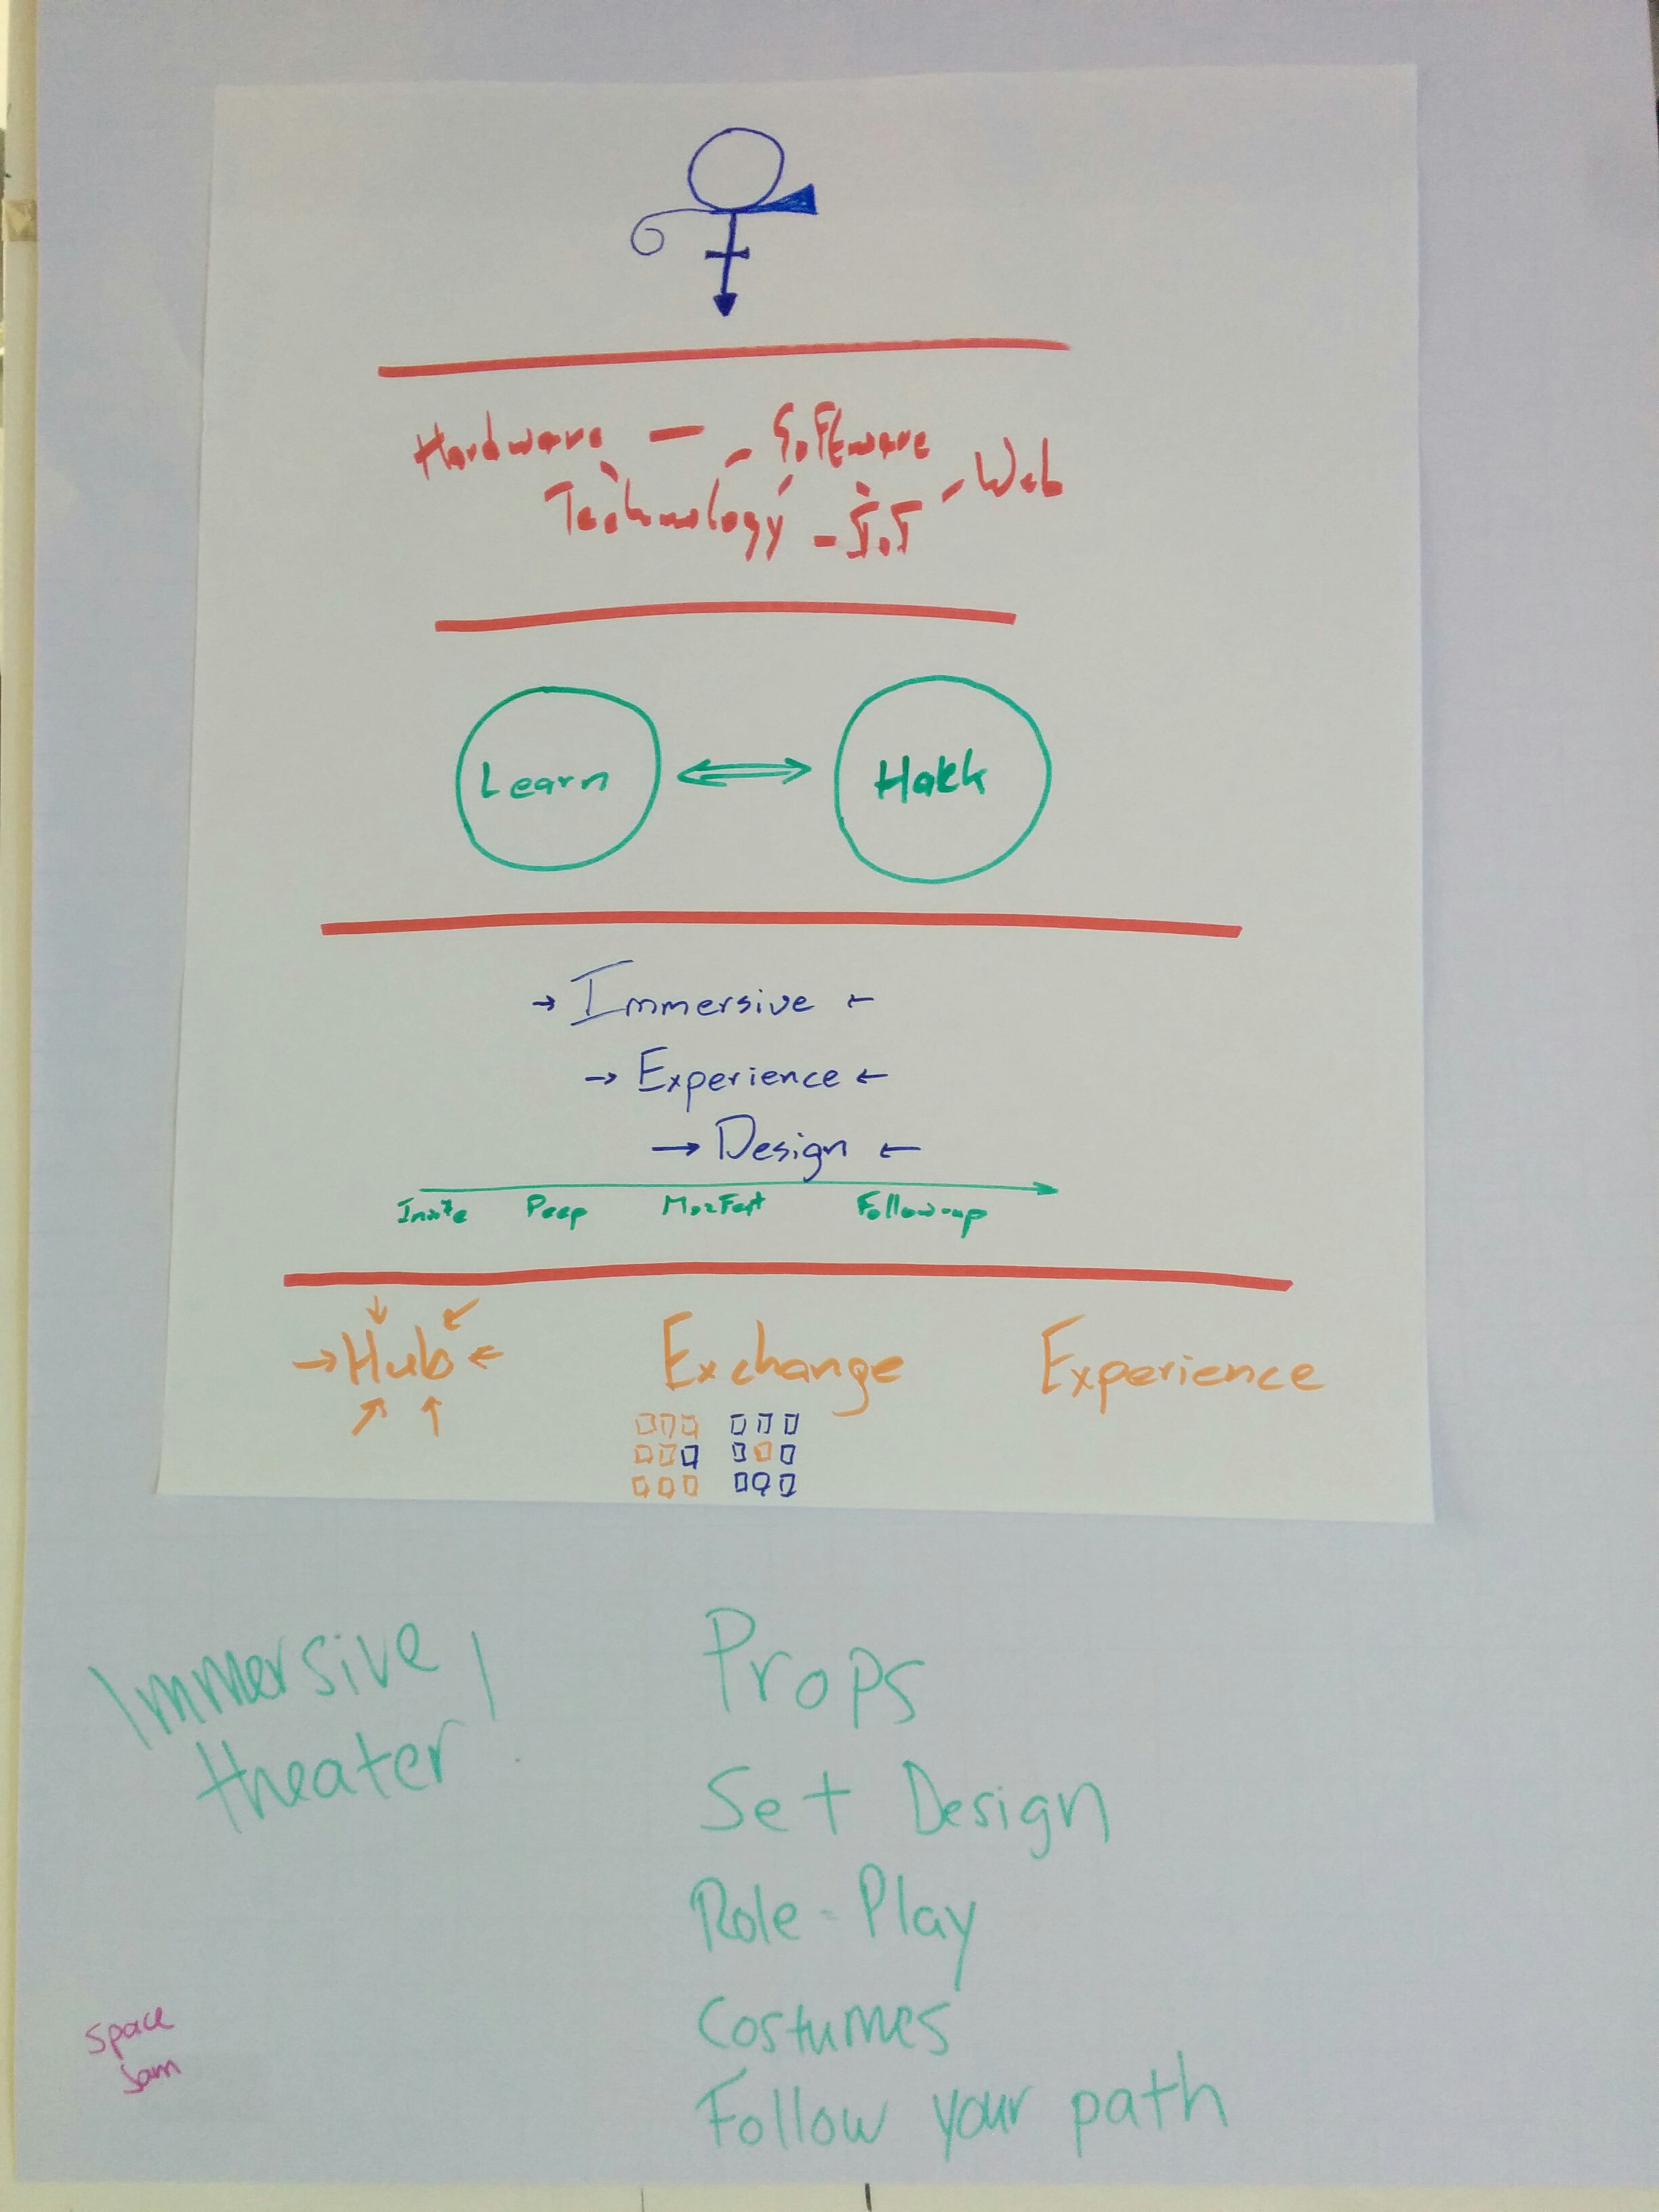 Hardware — - Software
Technology - IoT - Web
Learn
Hakk
→ Immersive ←
→ Experience ←
→ Design ←
Invite Peep MozFest Follow-up
→ Hub ← Exchange Experience
Immersive
theater
Props
Set Design
Role-Play
Costumes
Follow your path
Space
Jam